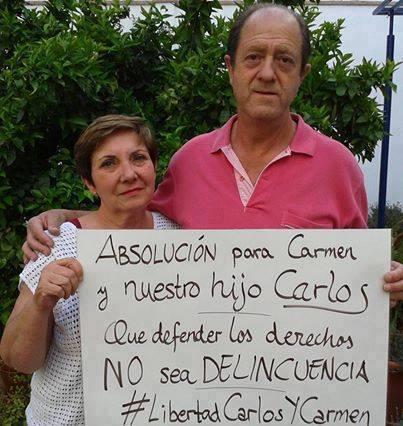 ABSOLUCIÓN para Carmen
y nuestro hijo Carlos
Que defender los derechos
NO sea DELINCUENCIA
#LibertadCarlosYCarmen